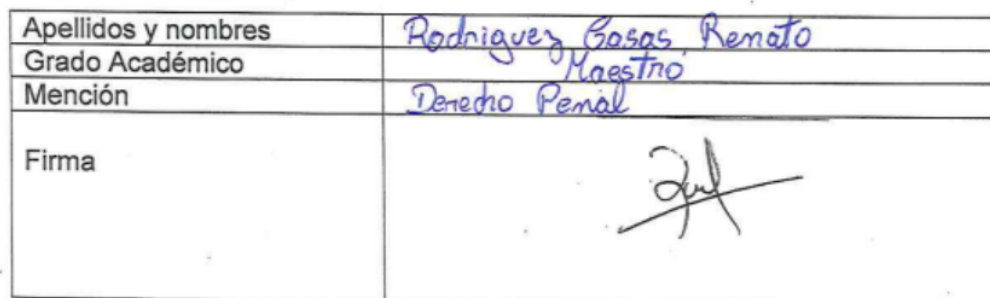 Apellidos y nombres Rodriguez Casas Renato
Grado Académico Maestro
Mención Derecho Penal
Firma